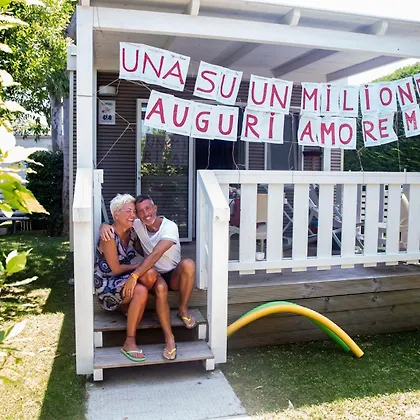 UNA SU UN MILION
AUGURI AMORE M